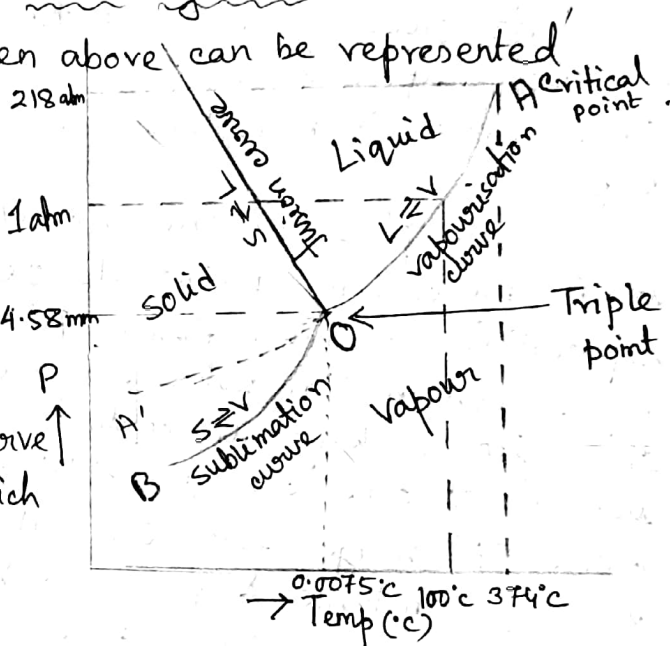 en above can be represented
218 atm
A Critical point
Liquid
fusion curve
S ⇌ L
1 atm
L ⇌ V
vapourisation curve
Solid
4.58mm
O
Triple point
P
A'
S ⇌ V
sublimation curve
Vapour
rve
B
ich
0.0075°C 100°C 374°C
→ Temp (°C)